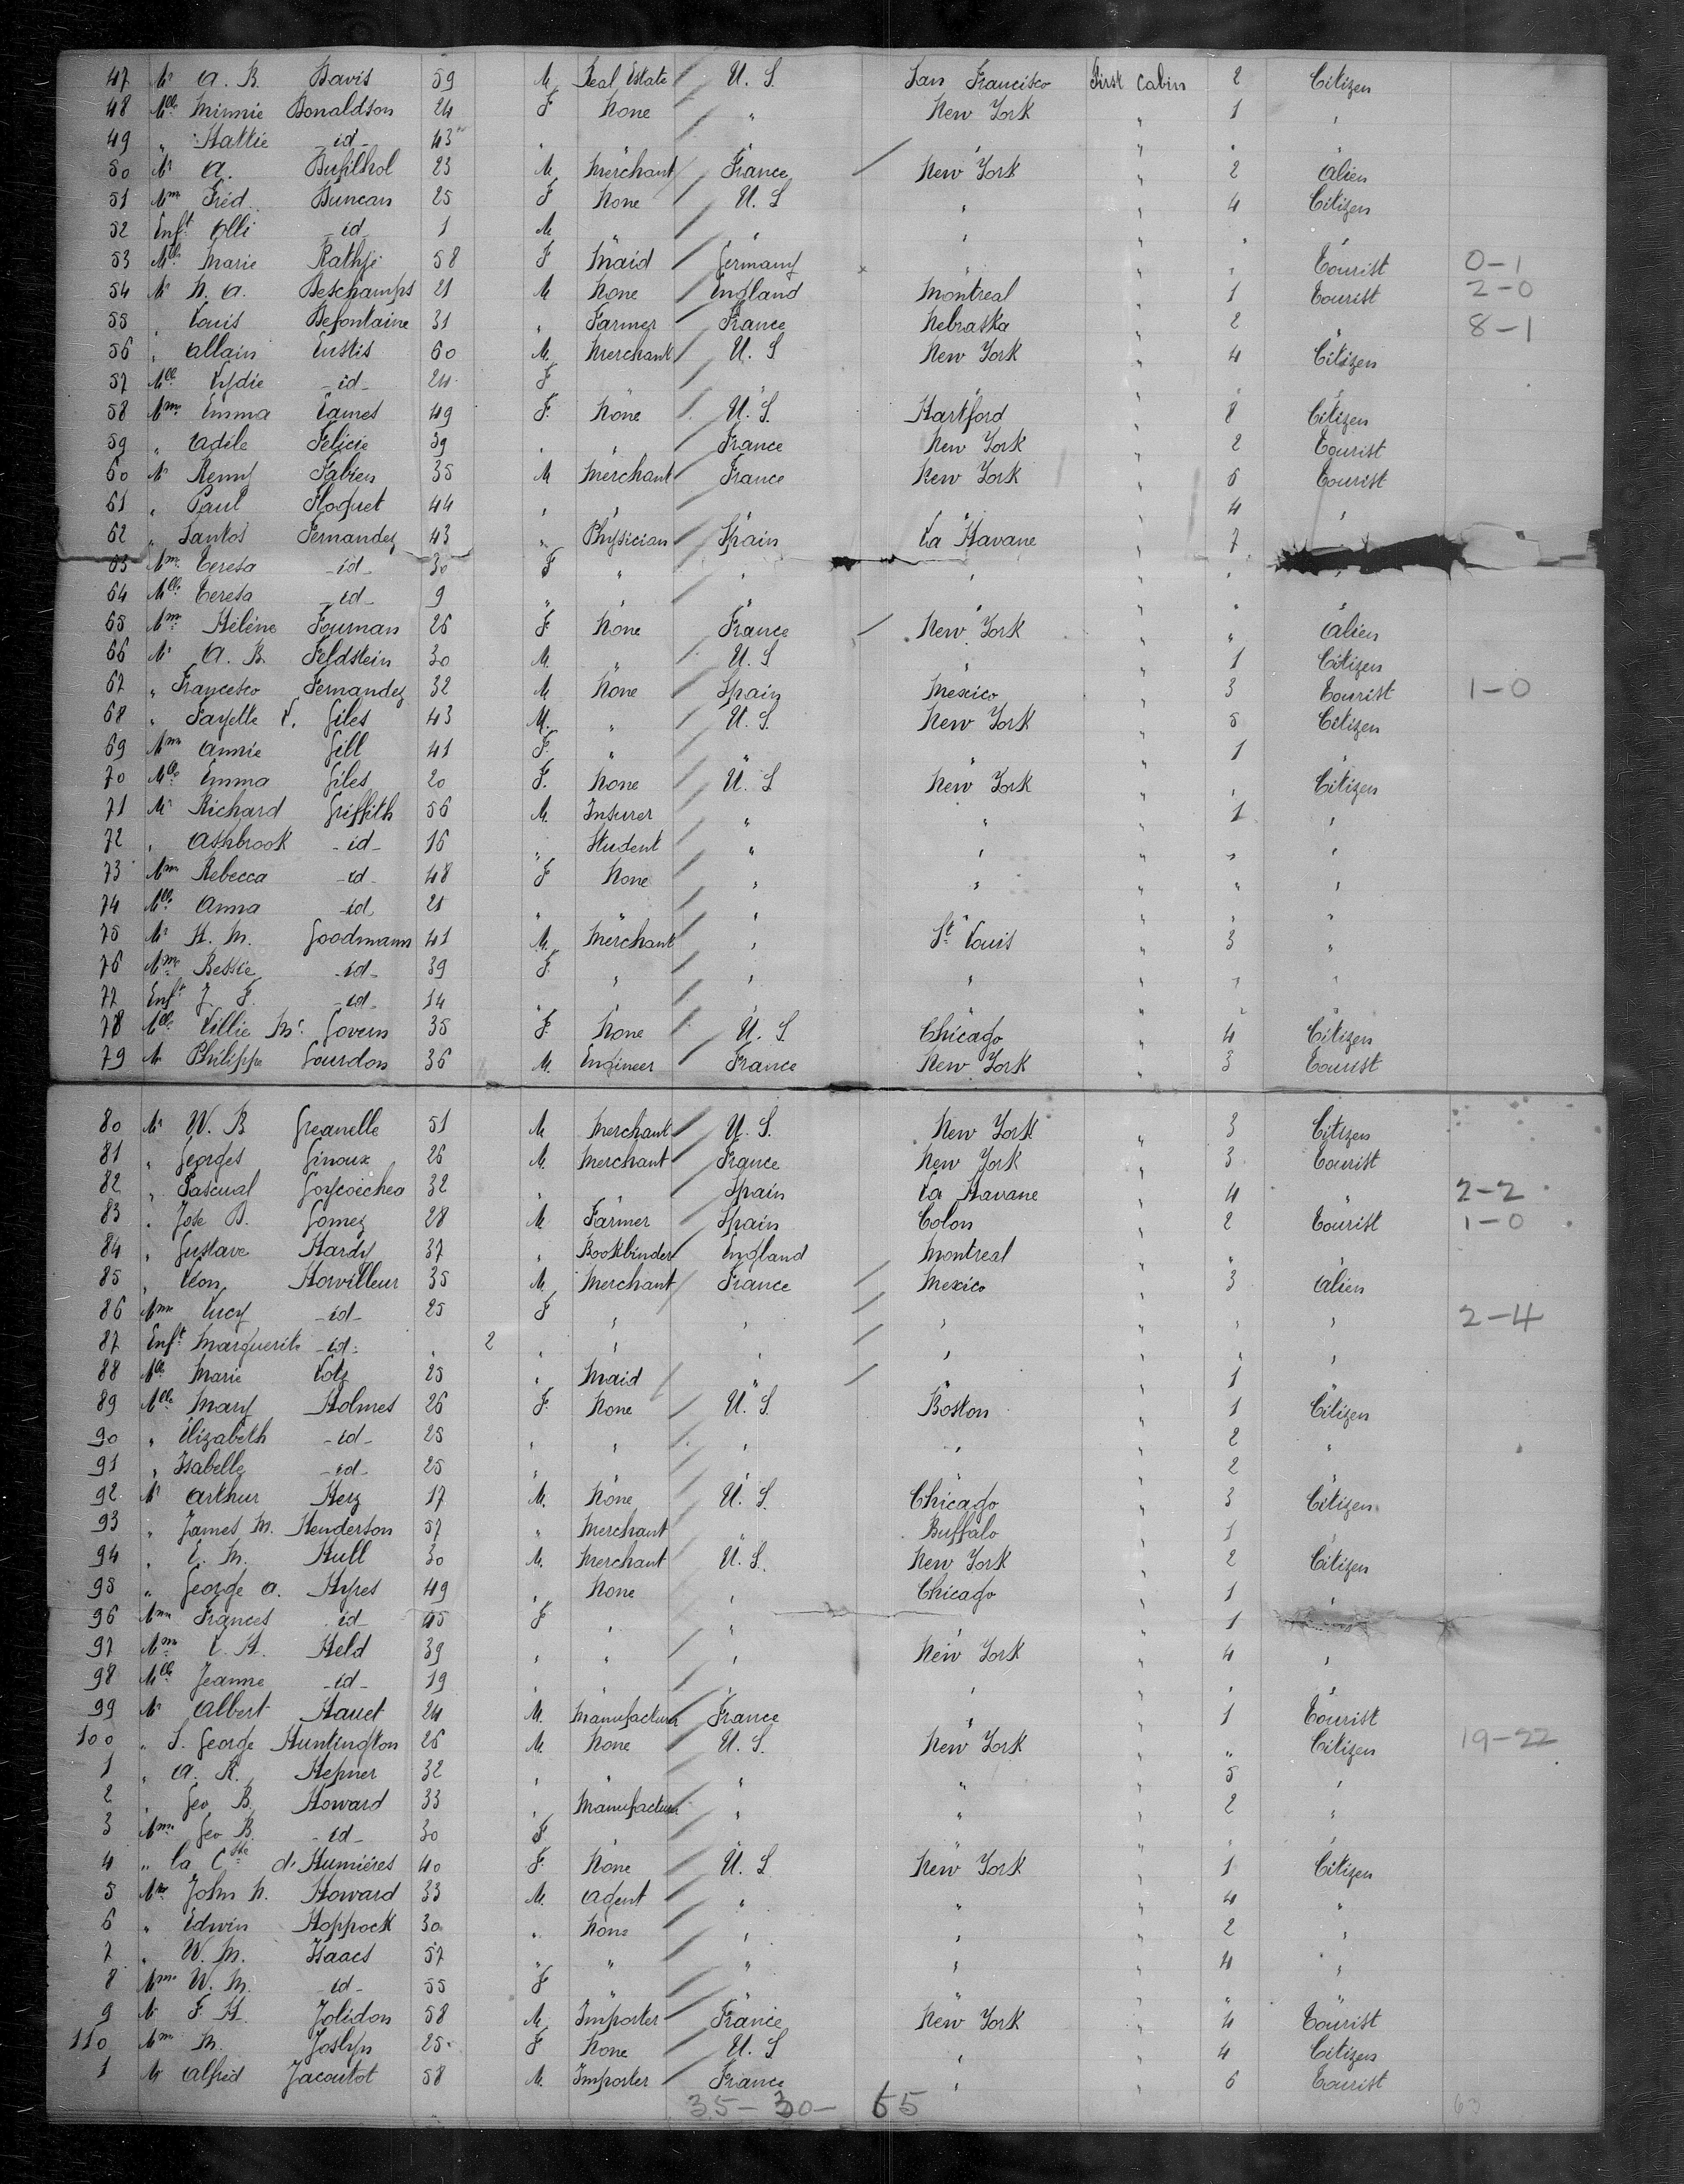 47 Mr A. B. Davis 59 M Real Estate U. S. San Francisco First Cabin 2 Citizen
48 Mlle Minnie Donaldson 24 F None " New York " 1 "
49 " Hattie _id_ 43 " " " " " " "
50 Mr A. 23 M Merchant France New York " 2 Alien
51 Mme Fréd. Duncan 25 F None U. S " " 4 Citizen
52 Enft Olli _id_ 1 M " " " " " "
53 Mlle Marie Rathje 58 F Maid Germany " " " Tourist 0-1
54 Mr N. A. Deschamps 21 M None England Montreal " 1 Tourist 2-0
55 " Louis Defontaine 31 " Farmer France Nebraska " 2 " 8-1
56 " Allain Eustis 60 M. Merchant U. S New York " 4 Citizen
57 Mlle Lydie _id_ 24 F " " " " " "
58 Mme Emma Eames 49 F. None U. S. Hartford " 8 Citizen
59 " Adèle Félicie 39 " " France New York " 2 Tourist
60 Mr Remy Fabien 35 M Merchant France New York " 6 Tourist
61 " Paul Floquet 44 " " " " " 4 "
62 " Santos Fernandez 43 " Physician Spain La Havane " 7
63 Mme Teresa _id_ 30 F " " " " " "
64 Mlle Teresa _id_ 9 " " " " " " "
65 Mme Hélène Fournan 26 F None France New York " " Alien
66 Mr A. B. Feldstein 30 M. " U. S " " 1 Citizen
67 " Francesco Fernandez 32 M None Spain Mexico " 3 Tourist 1-0
68 " Fayette L. Giles 43 M. " U. S. New York " 5 Citizen
69 Mme Annie Gill 41 F. " " " " 1 "
70 Mlle Emma Giles 20 F. None U. S New York " " Citizen
71 Mr Richard Griffith 56 M. Insurer " " " 1 "
72 " Ashbrook _id_ 16 " Student " " " " "
73 Mme Rebecca _id_ 48 F None " " " " "
74 Mlle Anna _id_ 21 " " " " " " "
75 Mr H. M. Goodmann 41 M. Merchant " St Louis " 3 "
76 Mme Bessie _id_ 39 F. " " " " " "
77 Enft J. F. _id_ 14 " " " " " " "
78 Mlle Lillie Mc Govern 35 F. None U. S. Chicago " 4 Citizen
79 Mr Philippe Gourdon 36 M. Engineer France New York " 3 Tourist
80 Mr W. B Greanelle 51 M Merchant U. S. New York " 3 Citizen
81 " Georges Ginoux 26 M. Merchant France New York " 3 Tourist
82 " Pascual Goycoechea 32 " " Spain La Havane " 4 " 2-2
83 " Jose B. Gomez 28 M Farmer Spain Colon " 2 Tourist 1-0
84 " Gustave Hardy 37 " Bookbinder England Montreal " " "
85 " Léon Horvilleur 35 M. Merchant France Mexico " 3 Alien
86 Mme Lucy _id_ 25 F " " " " " " 2-4
87 Enft Marguerite _id_ " 2 " " " " " " "
88 Mlle Marie Lotz 25 " Maid " " " 1 "
89 Mlle Mary Holmes 26 F. None U. S. Boston " 1 Citizen
90 " Elizabeth _id_ 25 " " " " " 2 "
91 " Isabelle _id_ 25 " " " " " 2 "
92 Mr Arthur Herz 17 M. None U. S. Chicago " 3 Citizen
93 " James M. Henderson 57 " Merchant " Buffalo " 1 "
94 " E. M. Hull 30 M. Merchant U. S. New York " 2 Citizen
95 " George A. Hyres 49 " None " Chicago " 1 "
96 Mme Frances _id_ 45 F " " " " 1
97 Mme L. H. Held 39 " " " New York " 4 "
98 Mlle Jeanne _id_ 19 " " " " " " "
99 Mr Albert Hauet 24 M. Manufacturer France " " 1 Tourist
100 " S. George Huntington 26 M. None U. S. New York " " Citizen 19-22
1 " A. R. Hepner 32 " " " " " 5 "
2 " Geo B. Howard 33 " Manufacturer " " " 2 "
3 Mme Geo B. _id_ 30 F " " " " " "
4 " La Ctsse d'Humières 40 F. None U. S. New York " 1 Citizen
5 Mr John N. Howard 33 M. Agent " " " 4 "
6 " Edwin Hoppock 30 " None " " " 2 "
7 " W. M. Isaacs 57 " " " " " 4 "
8 Mme W. M. _id_ 55 F " " " " " "
9 Mr F. H. Jolidon 58 M. Importer France New York " 4 Tourist
110 Mme M. Joslyn 25 F None U. S " " 4 Citizen
1 Mr Alfred Jacoutot 58 M. Importer France " " 6 Tourist
35-30- 65 63